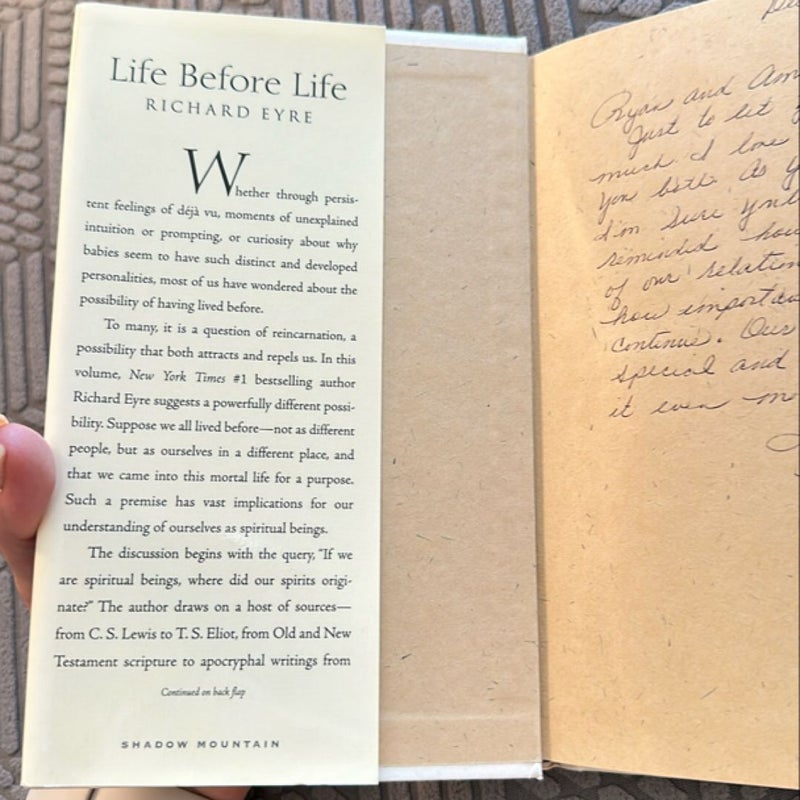 Life Before Life
RICHARD EYRE
Whether through persis-
tent feelings of déjà vu, moments of unexplained
intuition or prompting, or curiosity about why
babies seem to have such distinct and developed
personalities, most of us have wondered about the
possibility of having lived before.
To many, it is a question of reincarnation, a
possibility that both attracts and repels us. In this
volume, New York Times #1 bestselling author
Richard Eyre suggests a powerfully different possi-
bility. Suppose we all lived before—not as different
people, but as ourselves in a different place, and
that we came into this mortal life for a purpose.
Such a premise has vast implications for our
understanding of ourselves as spiritual beings.
The discussion begins with the query, "If we
are spiritual beings, where did our spirits origi-
nate?" The author draws on a host of sources—
from C. S. Lewis to T. S. Eliot, from Old and New
Testament scripture to apocryphal writings from
Continued on back flap
SHADOW MOUNTAIN
Ryan and Am
Just to let
much I love
you both. As y
I'm sure you'll
reminded how
of our relation
how importa
continue. Our
special and
it even m